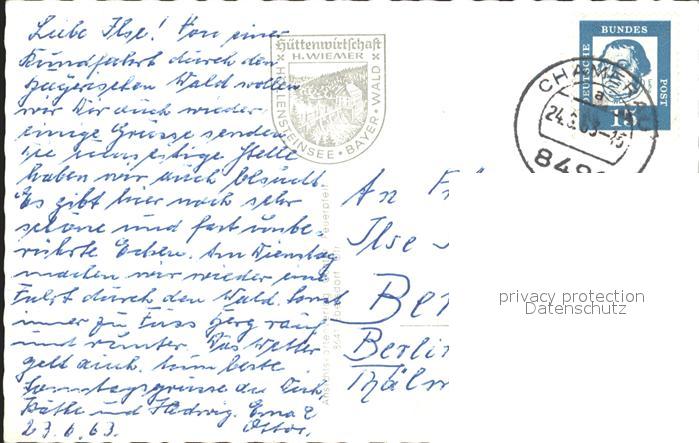 Liebe Ilse! Von einer
Rundfahrt durch den
Bayerischen Wald wollen
wir Dir auch wieder
einige Grüsse senden
Stelle
haben wir auch besucht.
Es gibt hier noch sehr
schöne und fast unbe-
rührte Ecken. Am Dienstag
machen wir wieder eine
Fahrt durch den Wald. Sonst
immer zu Fuss Berg rauf
und runter. Das Wetter
geht auch.
Sonntagsgrüsse an Dich,
Käthe und Hedwig. Erna &
23.6.63. Ottor.
Hüttenwirtschaft
H. WIEMER
HÖLLENSTEINSEE · BAYER · WALD
BUNDES
POST
DEUTSCHE
15
CHAMERAU
a
849
An
Ilse
Be
Berlin
Thälm
privacy protection
Datenschutz